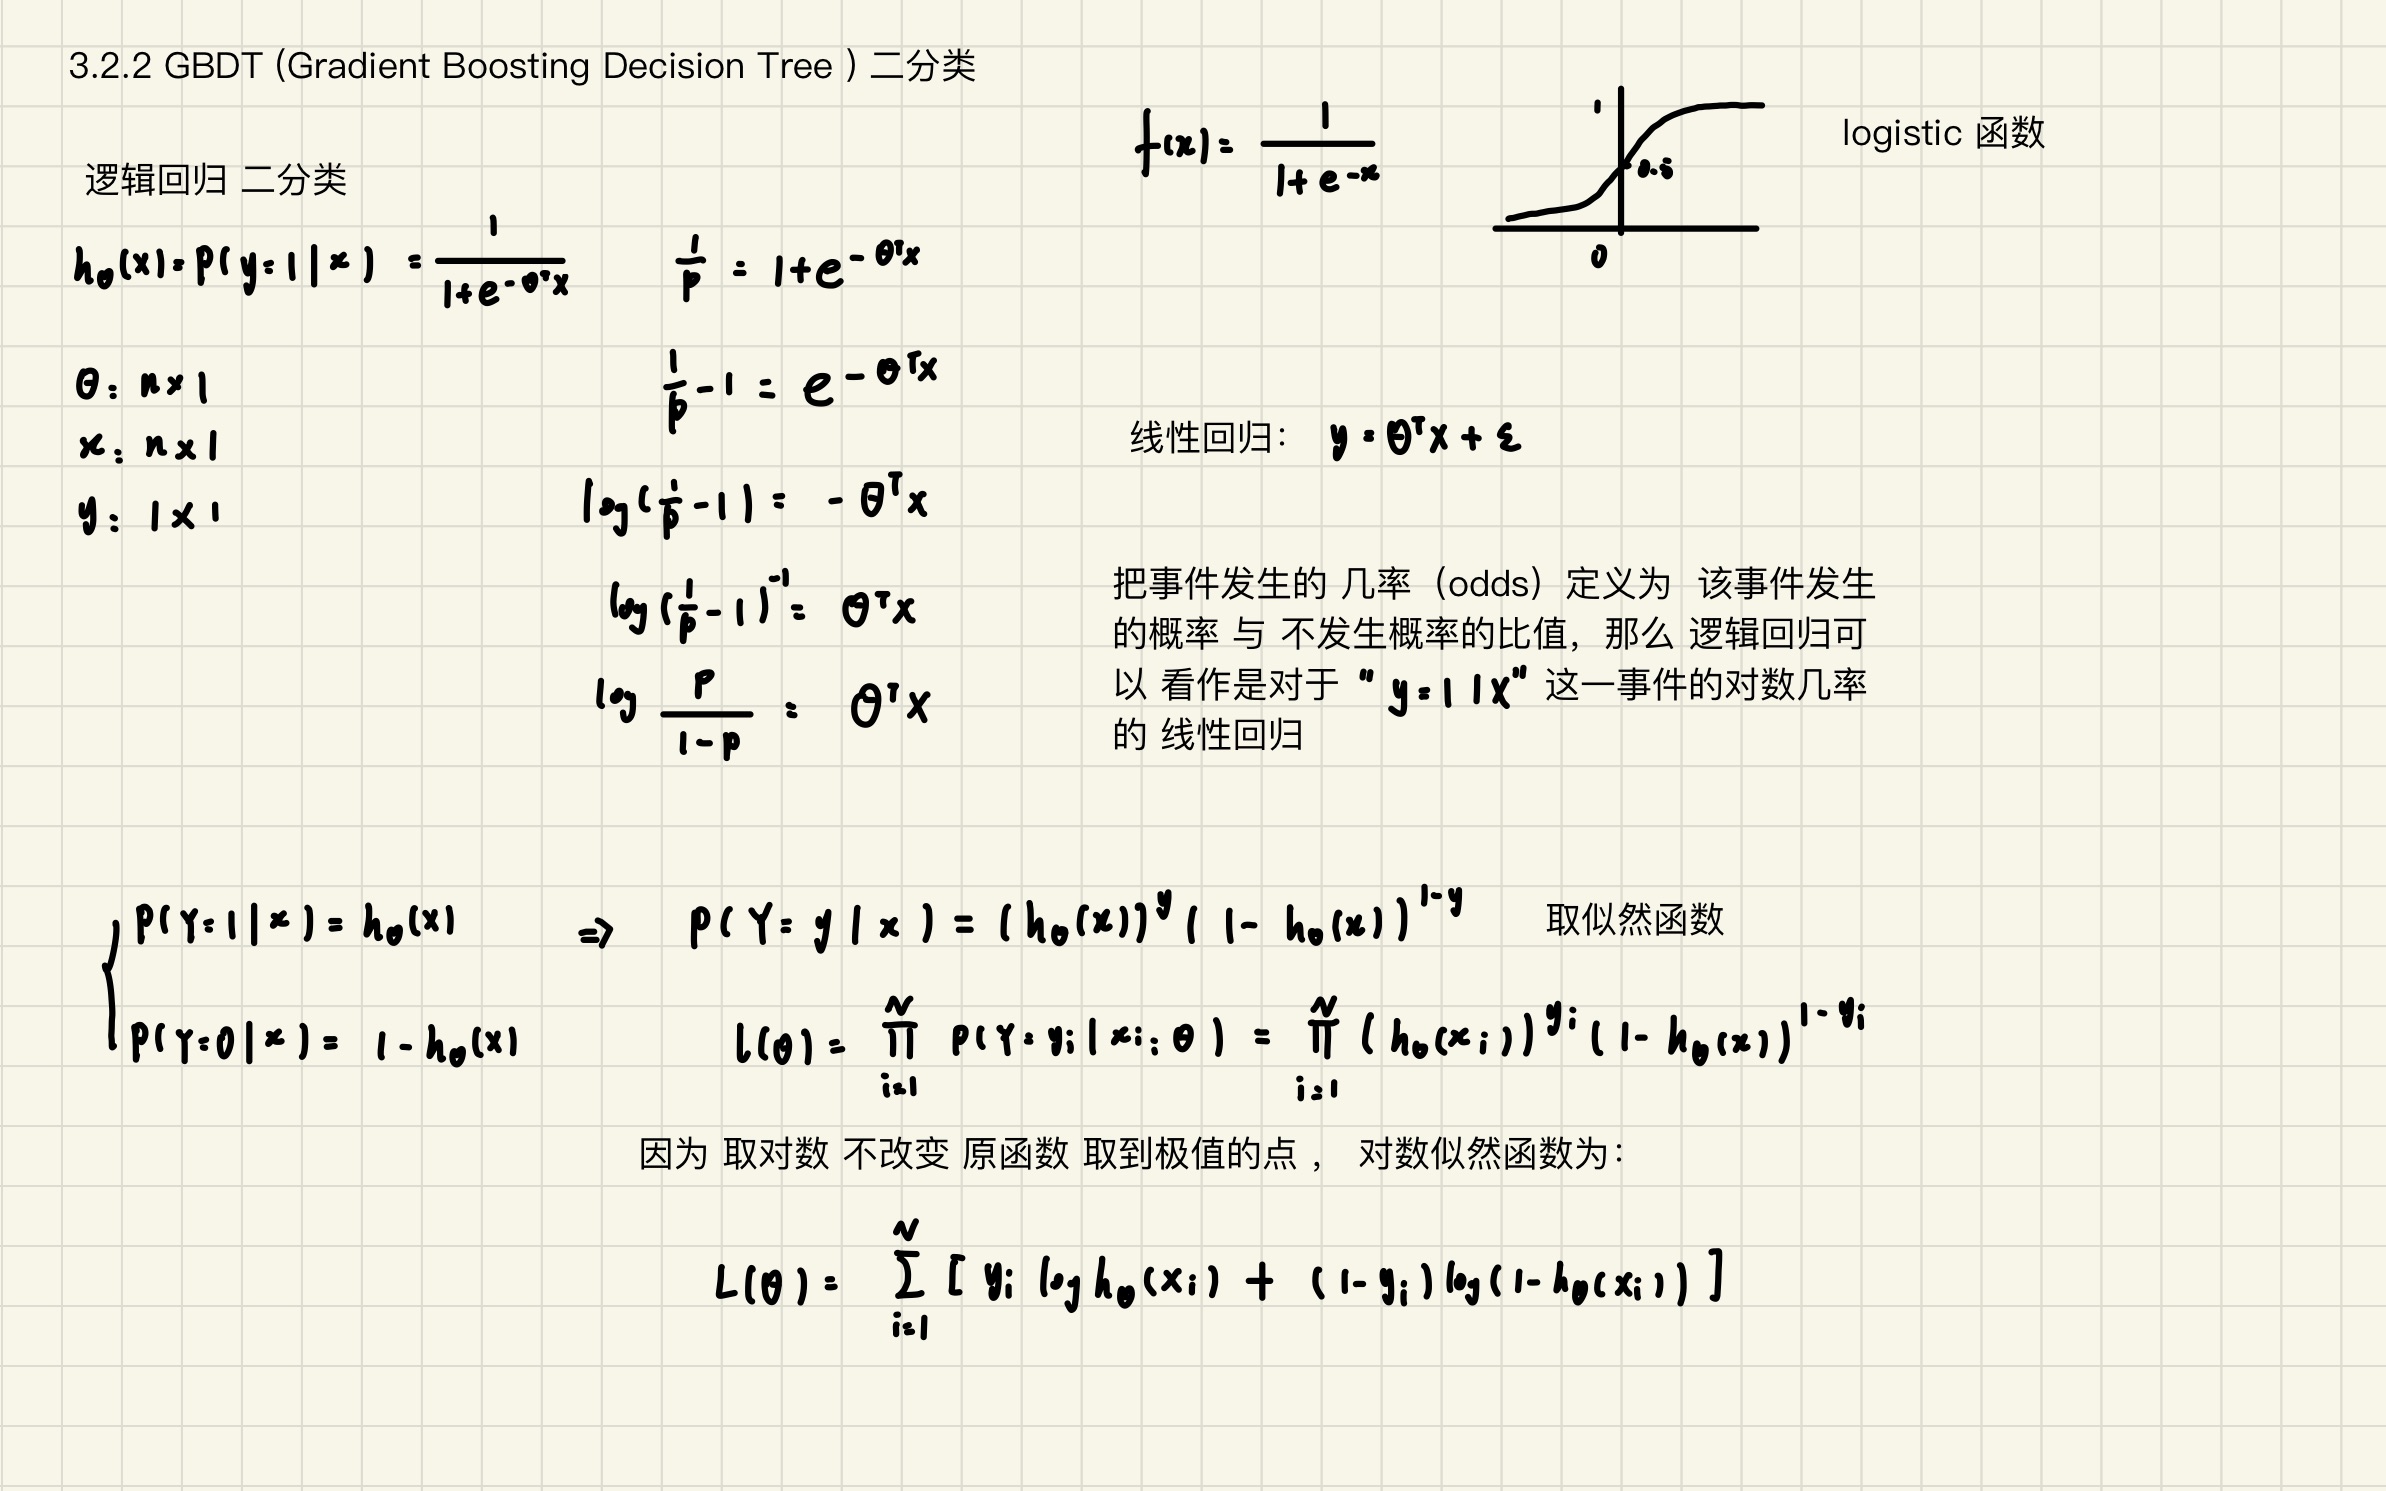 3.2.2 GBDT (Gradient Boosting Decision Tree ) 二分类
f(x) = 1 / (1 + e^{-x})
1
0.5
0
logistic 函数
逻辑回归 二分类
h_θ(x) = P(y=1|x) = 1 / (1+e^{-θ^T x})
θ: n×1
x: n×1
y: 1×1
1/p = 1+e^{-θ^T x}
1/p - 1 = e^{-θ^T x}
log(1/p - 1) = -θ^T x
log(1/p - 1)^{-1} = θ^T x
log p/(1-p) = θ^T x
线性回归: y = θ^T x + ε
把事件发生的 几率（odds）定义为 该事件发生
的概率 与 不发生概率的比值，那么 逻辑回归可
以 看作是对于 "y=1|x" 这一事件的对数几率
的 线性回归
{ P(Y=1|x) = h_θ(x)
P(Y=0|x) = 1-h_θ(x)
⇒ P(Y=y|x) = (h_θ(x))^y (1-h_θ(x))^{1-y} 取似然函数
L(θ) = ∏_{i=1}^{N} P(Y=y_i|x_i;θ) = ∏_{i=1}^{N} (h_θ(x_i))^{y_i} (1-h_θ(x))^{1-y_i}
因为 取对数 不改变 原函数 取到极值的点， 对数似然函数为：
L(θ) = ∑_{i=1}^{N} [y_i log h_θ(x_i) + (1-y_i) log(1-h_θ(x_i))]